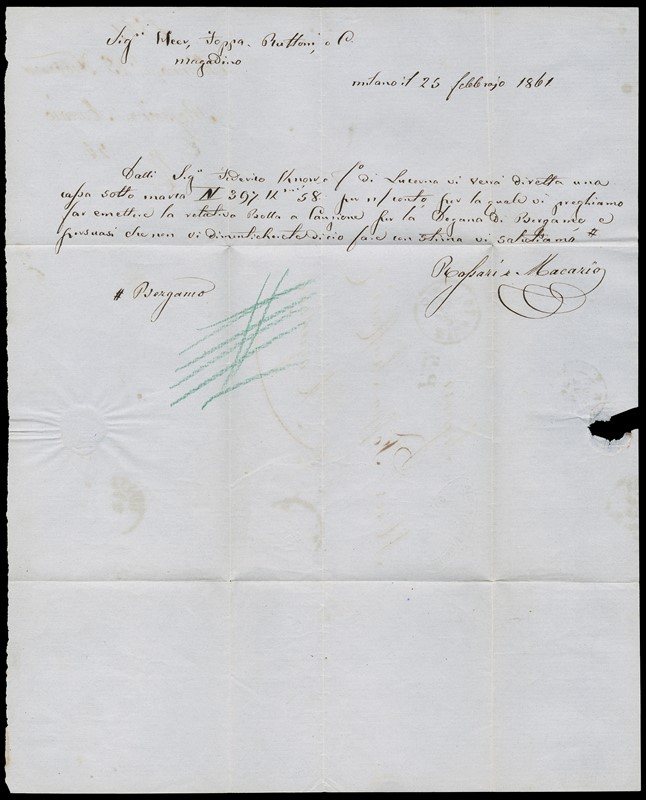 Sig.ri Meer, Foppa, Ruttoni, e C.
magadino
milano il 25 febbrajo 1861
Dalli Sig.ri Federico Knowr e f.o di Lucerna vi verà diretta una
cassa sotto marca N 397 K.mi 58. per n/ conto per la quale vi preghiamo
far emettere la rotativa Bolla a Cauzione per la Dogana di Bergamo e
persuasi che non vi dimenticherete di ciò fare con stima vi salutiamo #
Rossari e Macario
# Bergamo